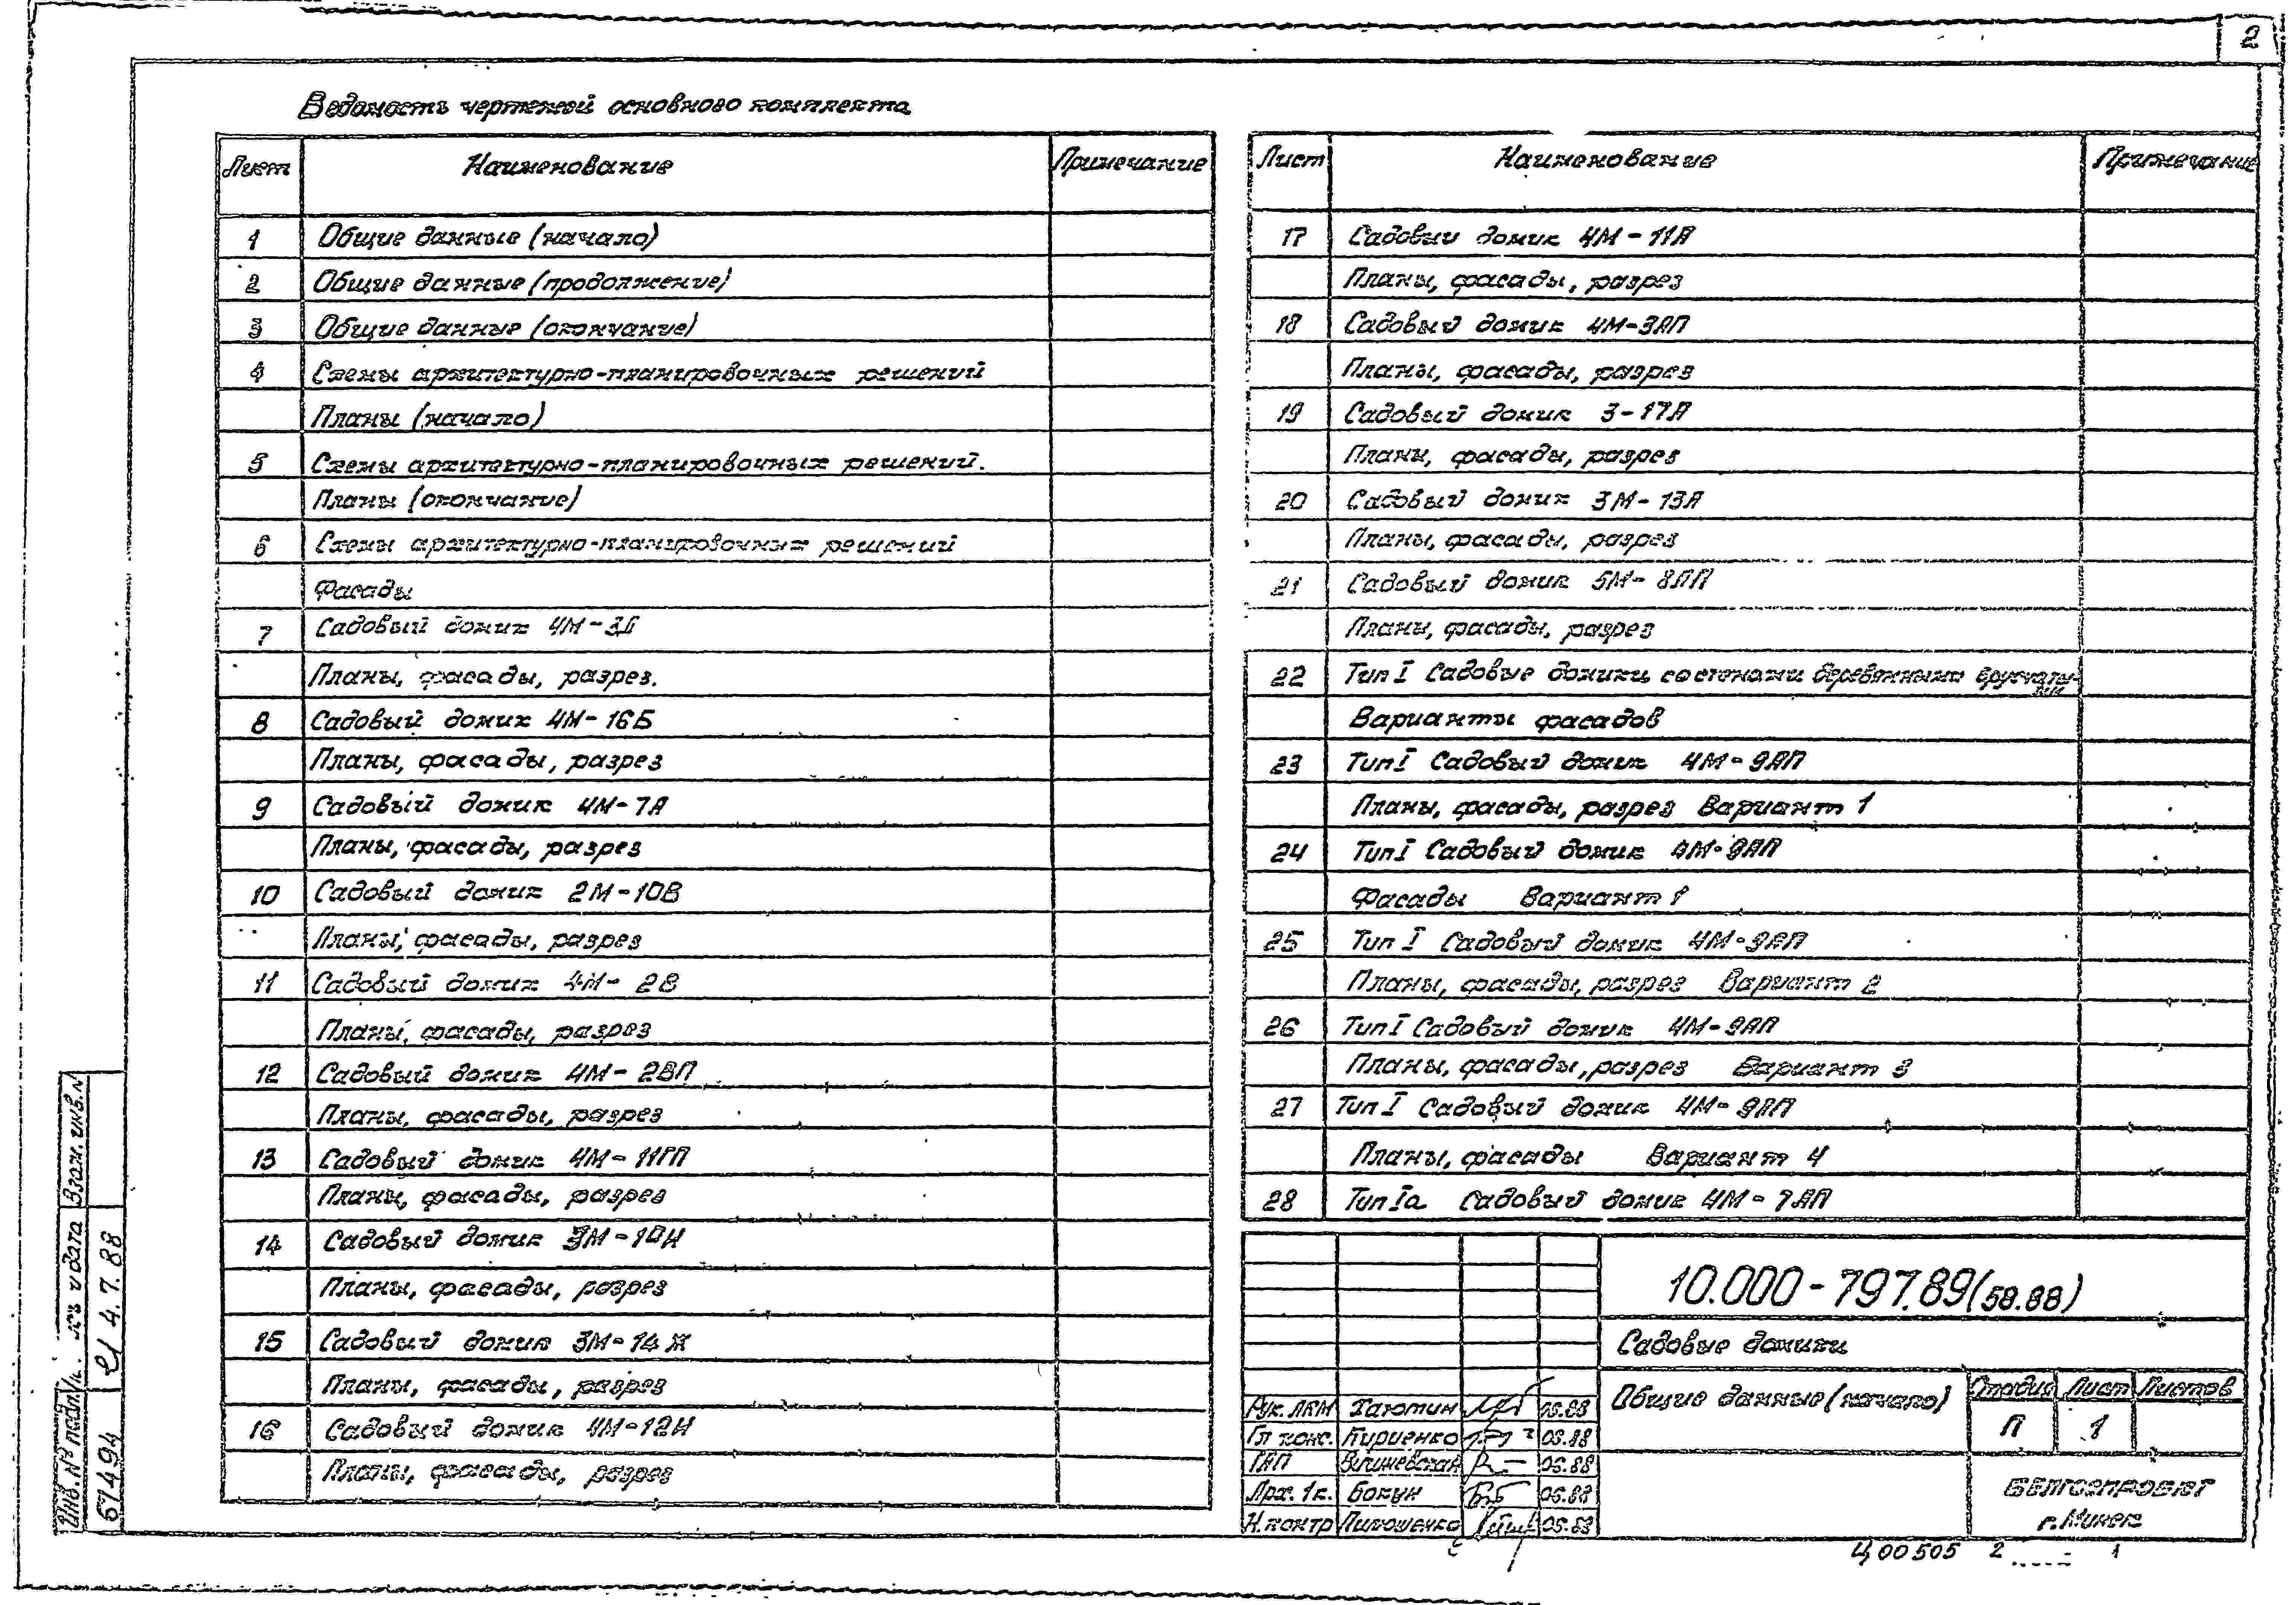 2
Ведомость чертежей основного комплекта
Лист Наименование Примечание
1 Общие данные (начало)
2 Общие данные (продолжение)
3 Общие данные (окончание)
4 Схемы архитектурно-планировочных решений
Планы (начало)
5 Схемы архитектурно-планировочных решений.
Планы (окончание)
6 Схемы архитектурно-планировочных решений
Фасады
7 Садовый домик
Планы, фасады, разрез.
8 Садовый домик 4М-16Б
Планы, фасады, разрез
9 Садовый домик 4М-7А
Планы, фасады, разрез
10 Садовый домик 2М-10В
Планы, фасады, разрез
11 Садовый домик 4М-2В
Планы, фасады, разрез
12 Садовый домик 4М-2ВП
Планы, фасады, разрез
13 Садовый домик 4М-11ГП
Планы, фасады, разрез
14 Садовый домик
Планы, фасады, разрез
15 Садовый домик 3М-14Ж
Планы, фасады, разрез
16 Садовый домик 4М-12И
Планы, фасады, разрез
Лист Наименование Примечание
17 Садовый домик 4М-11А
Планы, фасады, разрез
18 Садовый домик 4М-3АП
Планы, фасады, разрез
19 Садовый домик 3-17А
Планы, фасады, разрез
20 Садовый домик 3М-13А
Планы, фасады, разрез
21 Садовый домик 5М-8АП
Планы, фасады, разрез
22 Тип I Садовые домики со стенами деревянными брусчаты-
ми
Варианты фасадов
23 Тип I Садовый домик 4М-9АП
Планы, фасады, разрез Вариант 1
24 Тип I Садовый домик 4М-9АП
Фасады Вариант 1
25 Тип I Садовый домик 4М-9АП
Планы, фасады, разрез Вариант 2
26 Тип I Садовый домик 4М-9АП
Планы, фасады, разрез Вариант 3
27 Тип I Садовый домик 4М-9АП
Планы, фасады Вариант 4
28 Тип Iа Садовый домик 4М-7АП
10.000-797.89(58.88)
Садовые домики
Общие данные (начало)
Стадия Лист Листов
П 1
Рук. АКМ Хаютин 06.88
Гл конс. Кириенко 06.88
ГАП Вишневская 06.88
Арх. 1к. Бокун 06.88
Н.контр 06.88
БЕЛГОСПРОЕКТ
г. Минск
Ц00505 2 1
Взам. инв. N
и дата 4.7.88
Инв. № подл. 67494